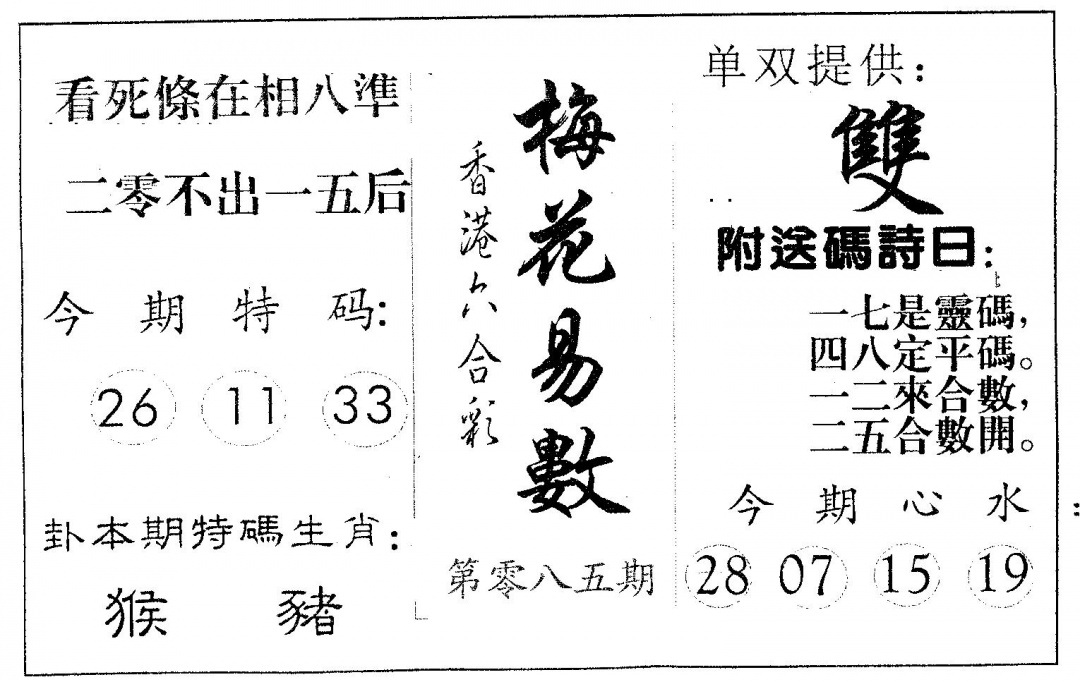 看死條在相八準
二零不出一五后
今期特码:
26 11 33
卦本期特碼生肖:
猴 豬
梅花易數
香港六合彩
第零八五期
单双提供:
雙
附送碼詩曰:
一七是靈碼,
四八定平碼。
一二來合數,
二五合數開。
今期心水:
28 07 15 19